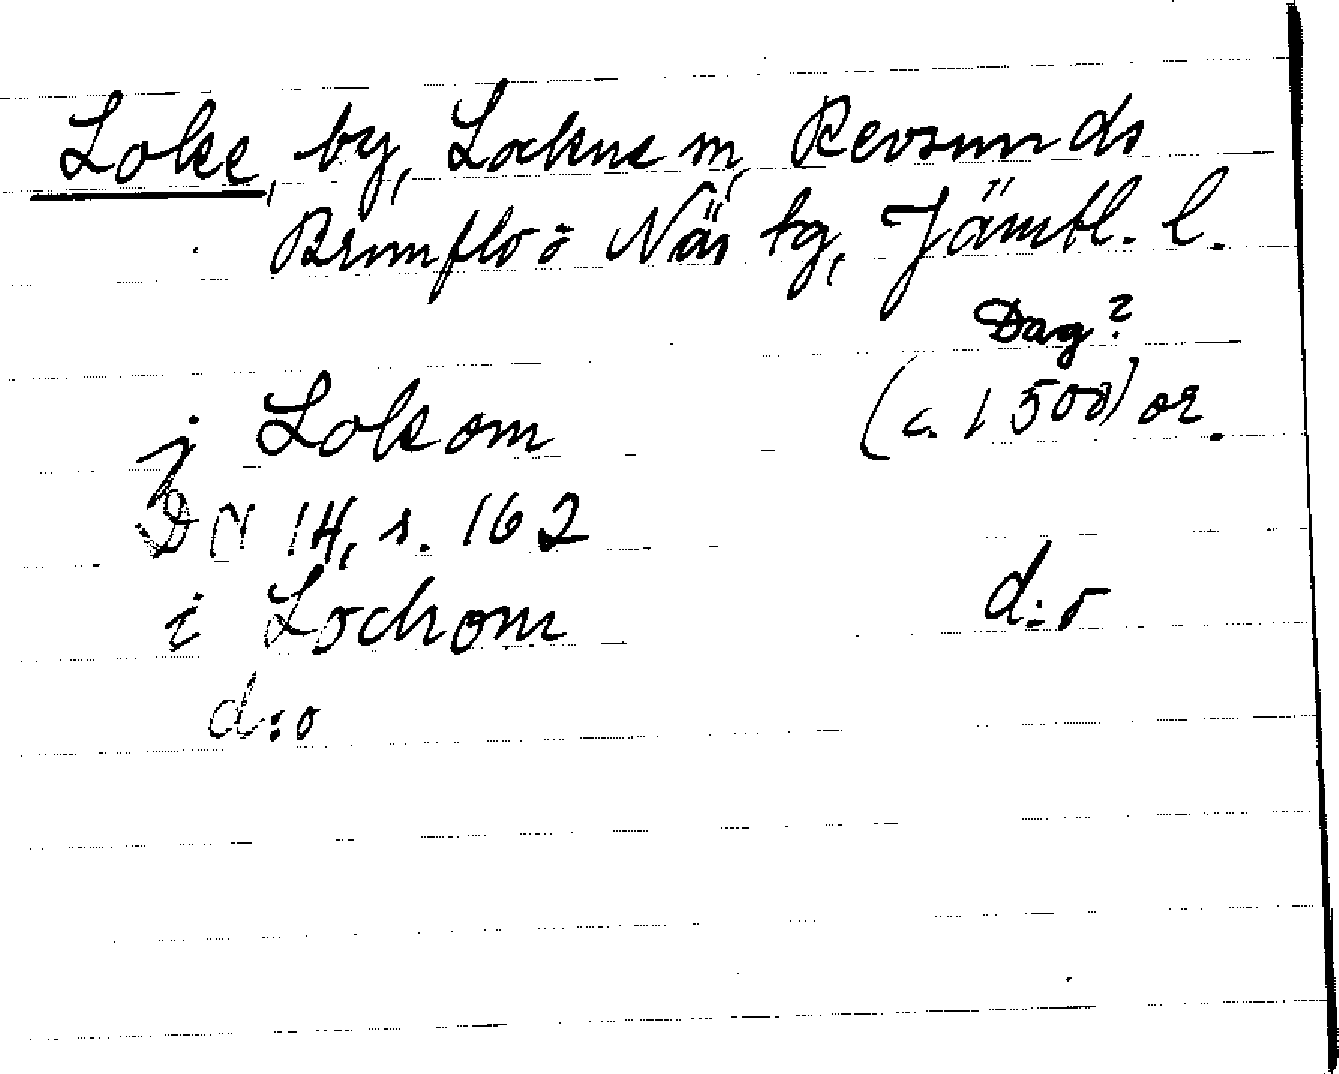 Loke, by, Lockne sn, Revsunds
Brunflo o Näs tg, Jämtl. l.
Dag?
j Lokom (c. 1500) or.
DN 14, s. 162
i Lockom d:o
d:o